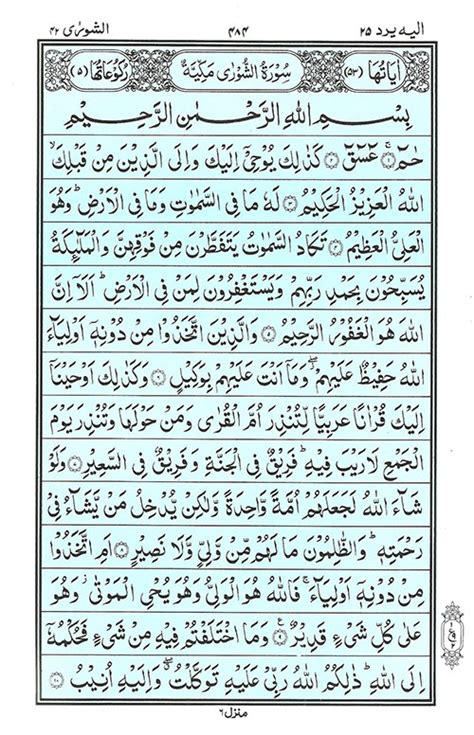 الشورٰى ٤٢ ٤٨٤ اليه يرد ٢٥
اٰيَاتُهَا (٥٣) سُوْرَةُ الشُّوْرٰى مَكِّيَّةٌ رُكُوْعَاتُهَا (٥)
بِسْمِ اللهِ الرَّحْمٰنِ الرَّحِيْمِ
حٰمٓ ۚ‏﴿۱﴾ عٓسٓقٓ ‏﴿۲﴾ كَذٰلِكَ يُوْحِىْۤ اِلَيْكَ وَاِلَى الَّذِيْنَ مِنْ قَبْلِكَ ۙ
اللهُ الْعَزِيْزُ الْحَكِيْمُ ‏﴿۳﴾ لَهٗ مَا فِى السَّمٰوٰتِ وَمَا فِى الْاَرْضِ ؕ وَهُوَ
الْعَلِىُّ الْعَظِيْمُ ‏﴿۴﴾ تَكَادُ السَّمٰوٰتُ يَتَفَطَّرْنَ مِنْ فَوْقِهِنَّ وَالْمَلٰٓئِكَةُ
يُسَبِّحُوْنَ بِحَمْدِ رَبِّهِمْ وَيَسْتَغْفِرُوْنَ لِمَنْ فِى الْاَرْضِ ؕ اَلَاۤ اِنَّ
اللهَ هُوَ الْغَفُوْرُ الرَّحِيْمُ ‏﴿۵﴾ وَالَّذِيْنَ اتَّخَذُوْا مِنْ دُوْنِهٖۤ اَوْلِيَآءَ
اللهُ حَفِيْظٌ عَلَيْهِمْ ۖ وَمَاۤ اَنْتَ عَلَيْهِمْ بِوَكِيْلٍ ‏﴿۶﴾ وَكَذٰلِكَ اَوْحَيْنَاۤ
اِلَيْكَ قُرْاٰنًا عَرَبِيًّا لِّتُنْذِرَ اُمَّ الْقُرٰى وَمَنْ حَوْلَهَا وَتُنْذِرَ يَوْمَ
الْجَمْعِ لَا رَيْبَ فِيْهِ ؕ فَرِيْقٌ فِى الْجَنَّةِ وَفَرِيْقٌ فِى السَّعِيْرِ ‏﴿۷﴾ وَلَوْ
شَآءَ اللهُ لَجَعَلَهُمْ اُمَّةً وَّاحِدَةً وَّلٰكِنْ يُّدْخِلُ مَنْ يَّشَآءُ فِىْ
رَحْمَتِهٖ ؕ وَالظّٰلِمُوْنَ مَا لَهُمْ مِّنْ وَّلِىٍّ وَّلَا نَصِيْرٍ ‏﴿۸﴾ اَمِ اتَّخَذُوْا
مِنْ دُوْنِهٖۤ اَوْلِيَآءَ ۚ فَاللهُ هُوَ الْوَلِىُّ وَهُوَ يُحْىِ الْمَوْتٰى وَهُوَ
عَلٰى كُلِّ شَىْءٍ قَدِيْرٌ ‏﴿۹﴾ وَمَا اخْتَلَفْتُمْ فِيْهِ مِنْ شَىْءٍ فَحُكْمُهٗۤ
اِلَى اللهِ ؕ ذٰلِكُمُ اللهُ رَبِّىْ عَلَيْهِ تَوَكَّلْتُ ۖ وَاِلَيْهِ اُنِيْبُ ‏﴿۱۰﴾
منزل ٦